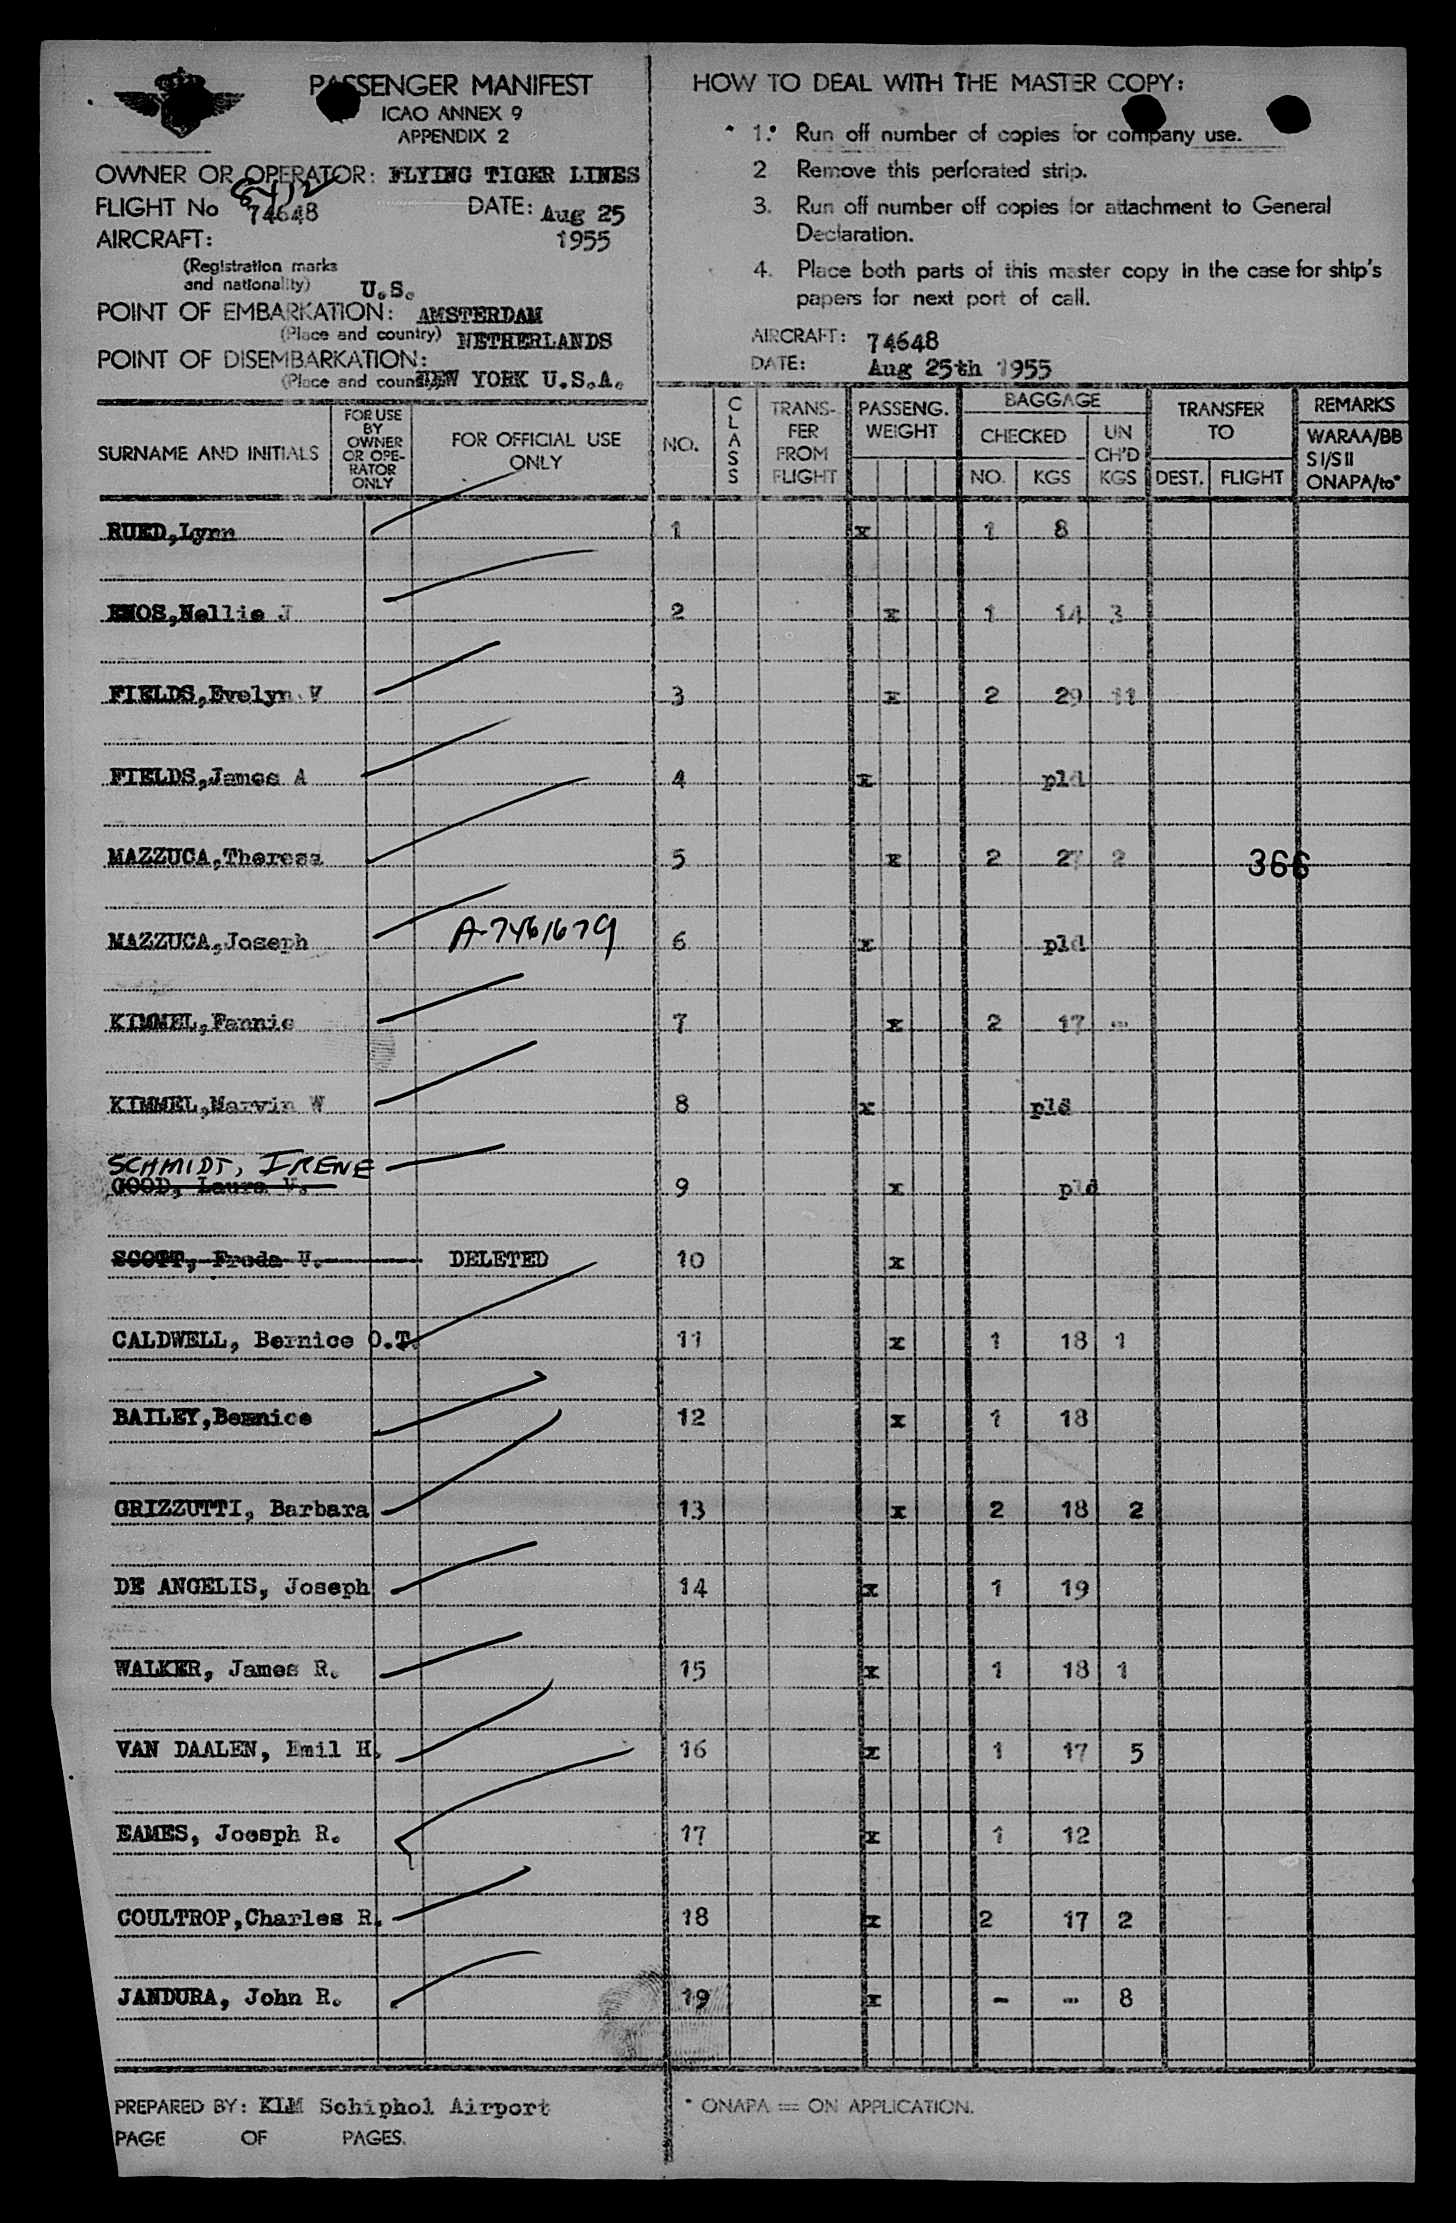 PASSENGER MANIFEST
ICAO ANNEX 9
APPENDIX 2
OWNER OR OPERATOR: FLYING TIGER LINES
FLIGHT No 74648 DATE: Aug 25
AIRCRAFT: 1955
(Registration marks
and nationality) U.S.
POINT OF EMBARKATION: AMSTERDAM
(Place and country) NETHERLANDS
POINT OF DISEMBARKATION:
(Place and country) NEW YORK U.S.A.
HOW TO DEAL WITH THE MASTER COPY:
* 1. Run off number of copies for company use.
2 Remove this perforated strip.
3. Run off number off copies for attachment to General
Declaration.
4. Place both parts of this master copy in the case for ship's
papers for next port of call.
AIRCRAFT: 74648
DATE: Aug 25th 1955
SURNAME AND INITIALS FOR USE BY OWNER OR OPE- RATOR ONLY FOR OFFICIAL USE ONLY NO. CLASS TRANS- FER FROM FLIGHT PASSENG. WEIGHT BAGGAGE CHECKED NO. KGS UN CH'D KGS TRANSFER TO DEST. FLIGHT REMARKS WARAA/BB SI/SII ONAPA/to*
RUED,Lynn 1 x 1 8
ENOS,Nellie J 2 x 1 14 3
FIELDS,Evelyn V 3 x 2 29 11
FIELDS,James A 4 x pld
MAZZUCA,Theresa 5 x 2 27 2 366
MAZZUCA,Joseph A-7461679 6 x pld
KIMMEL,Fannie 7 x 2 17 -
KIMMEL,Marvin W 8 x pld
SCHMIDT, IRENE
GOOD, Laura V. 9 x pld
SCOTT, Freda V. DELETED 10 x
CALDWELL, Bernice O.T. 11 x 1 18 1
BAILEY,Bernice 12 x 1 18
GRIZZUTTI, Barbara 13 x 2 18 2
DE ANGELIS, Joseph 14 x 1 19
WALKER, James R. 15 x 1 18 1
VAN DAALEN, Emil H. 16 x 1 17 5
EAMES, Joesph R. 17 x 1 12
COULTROP,Charles R. 18 x 2 17 2
JANDURA, John R. 19 x - - 8
PREPARED BY: KLM Schiphol Airport
* ONAPA = ON APPLICATION.
PAGE OF PAGES.